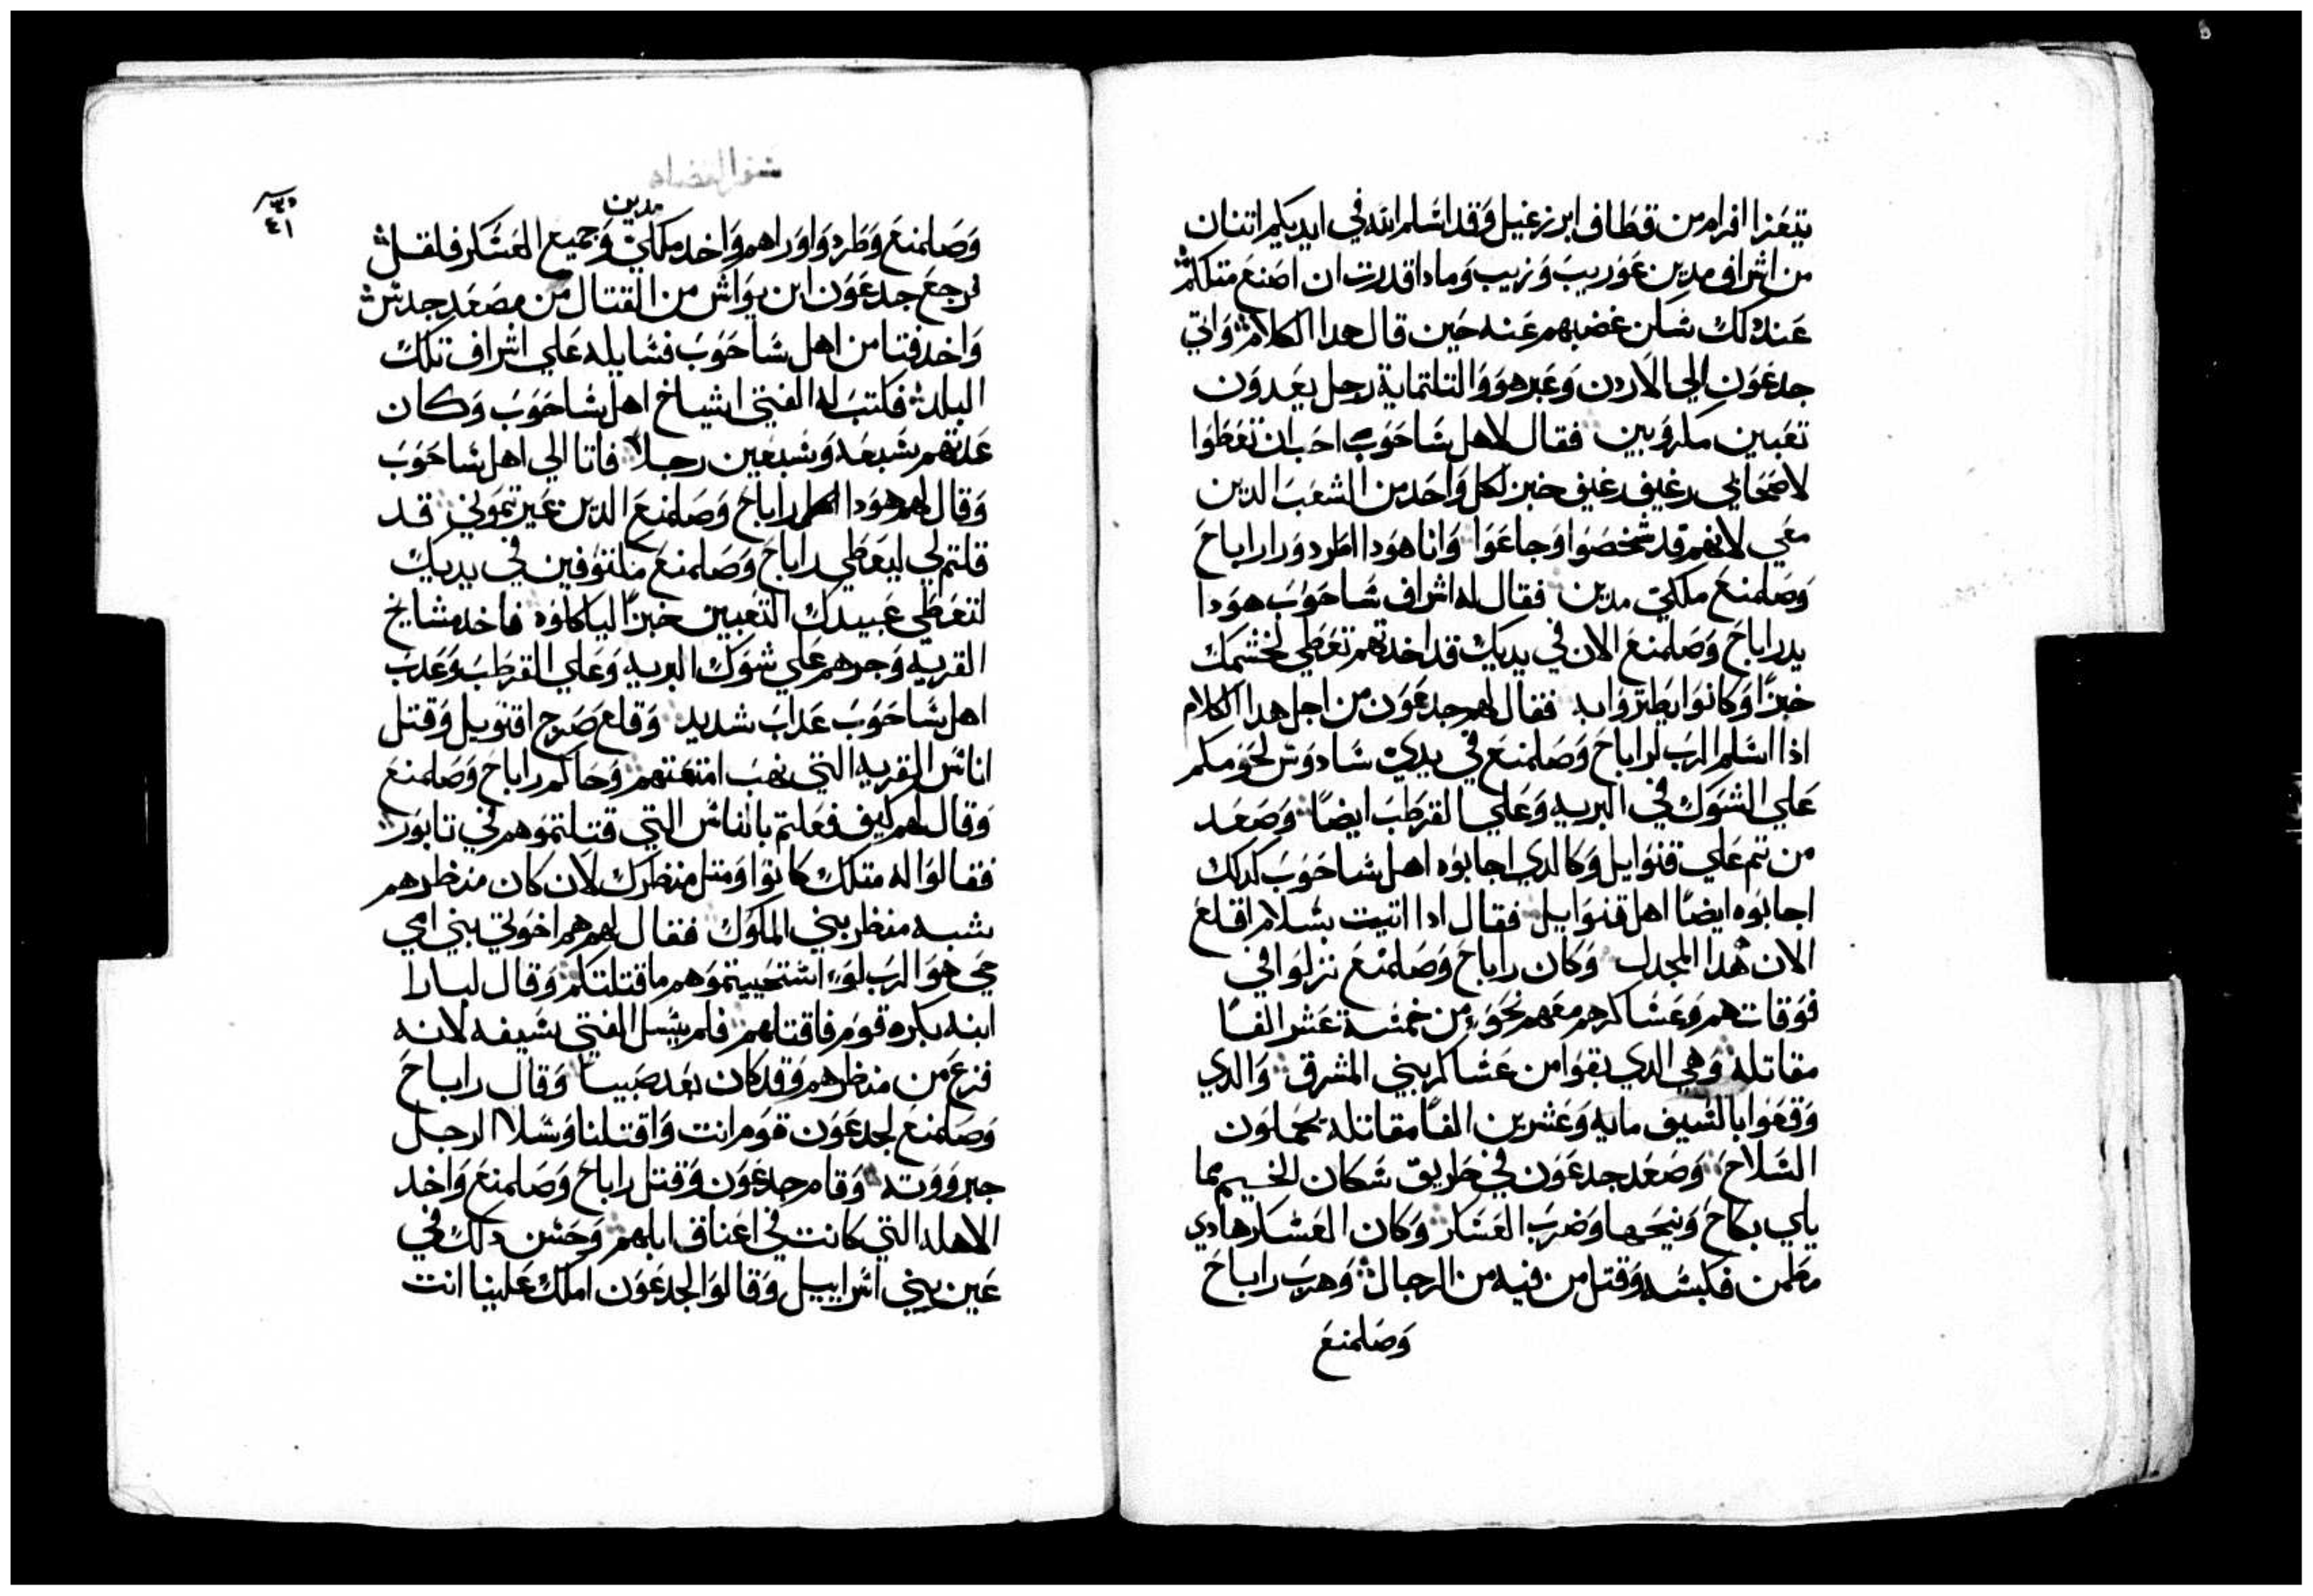 تتعزا افرام من قطاف ابن زعيل وقد اسلم الله في ايديكم اتنان
من اشراف مدين عوريب وزيب ومادا قدرت ان اصنع متلكم
عند دلك سكن غضبهم عنه حين قال هدا الكلام واتي
جدعون الي الاردن وعبر هو والتلتماية رجل يعدون
تعبين مكروبين فقال لاهل ساحوب احب ان تعطوا
لاصحابي رغيف رغيف خبز لكل واحد من الشعب الدين
معي لانهم قد شخصوا وجاعوا وانا هودا اطرد ورا راباح
وصلمنع ملكي مدين فقال له اشراف ساحوب هودا
يد راباح وصلمنع الان في يديك قد اخدتهم تعطي لخشمك
خبزا وكانوا يطتروا به فقال لهم جدعون من اجل هدا الكلام
اذا اسلم الرب لراباح وصلمنع في يدي سادوس لحومكم
علي الشوك في البريه وعلي القرطب ايضا وصعد
من تم علي قنوايل وكالدي اجابوه اهل ساحوب كدلك
اجابوه ايضا اهل قنوايل فقال ادا اتيت بسلام اقلع
الان هدا المجدل وكان راباح وصلمنع نزلوا في
فوقات هم وعساكرهم معهم نحو من خمسة عشر الفا
مقاتله وهي الدي بقوا من عساكر بني المشرق والدي
وقعوا بالسيف مايه وعشرين الفا مقاتله يحملون
السلاح وصعد جدعون في طريق سكان الخيم مما
يلي بكاح ونيحها وضرب العسكر وكان العسكر هادي
مطمن فكبسه وقتل من فيه من الرجال وهرب راباح
وصلمنع
سفر القضاه
٤١
مدين
وصلمنع وطردوا وراهم واخد ملكي وجميع العسكر فلقل
فرجع جدعون ابن يواش من القتال من مصعد جدس
واخد فتا من اهل ساحوب فسايله علي اشراف تلك
البلد فكتب له الفتي اشياخ اهل ساحوب وكان
عدتهم سبعه وسبعين رجلا فاتا الي اهل ساحوب
وقال لهم هودا لكم راباح وصلمنع الدين عيرتموني قد
قلتم لي ليعطي راباح وصلمنع مكتوفين في يديك
لتعطي عبيدك التعبين خبزا لياكلوه فاخد مشايخ
القريه وجرهم علي شوك البريه وعلي القرطب وعدب
اهل ساحوب عداب شديد وقلع صرح اقنويل وقتل
اناس القريه التي نهب امتعتهم وحاكم راباح وصلمنع
وقال لهم كيف فعلتم بالناس التي قتلتموهم في تابور
فقالوا له متلك كانوا ومتل منظرك لان كان منظرهم
شبه منظر بني الملوك فقال لهم هم اخوتي بني امي
حي هو الرب لو استحييتموهم ما قتلتكم وقال لبارا
ابنه بكره قوم فاقتلهم فلم يسل الفتي سيفه لانه
فزع من منظرهم وقد كان بعد صبيا وقال راباح
وصلمنع لجدعون قوم انت واقتلنا وسلا الرجل
جبرووته وقام جدعون وقتل راباح وصلمنع واخد
الاهله التي كانت في اعناق ابلهم وحسن دلك في
عين بني اسراييل وقالوا لجدعون املك علينا انت